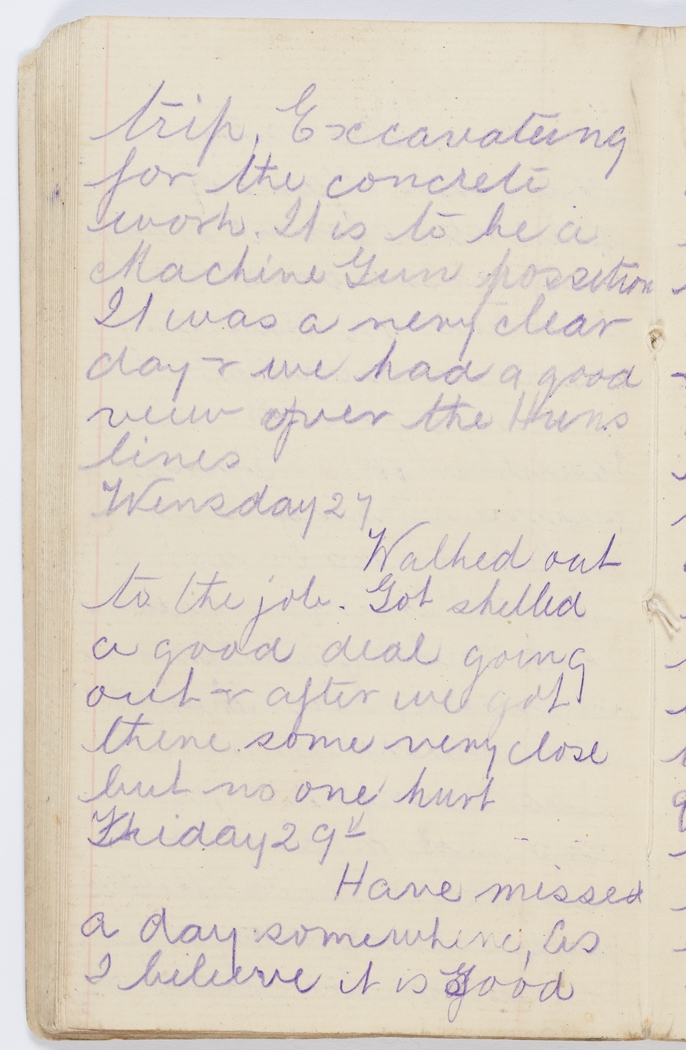 trip, Excavateing
for the concrete
work. It is to be a
Machine Gun possition
It was a very clear
day & we had a good
view over the Huns
lines
Wensday 27
Walked out
to the job. Got shelled
a good deal going
out & after we got
there some very close
but no one hurt
Friday 29th
Have missed
a day somewhere, As
I believe it is Good